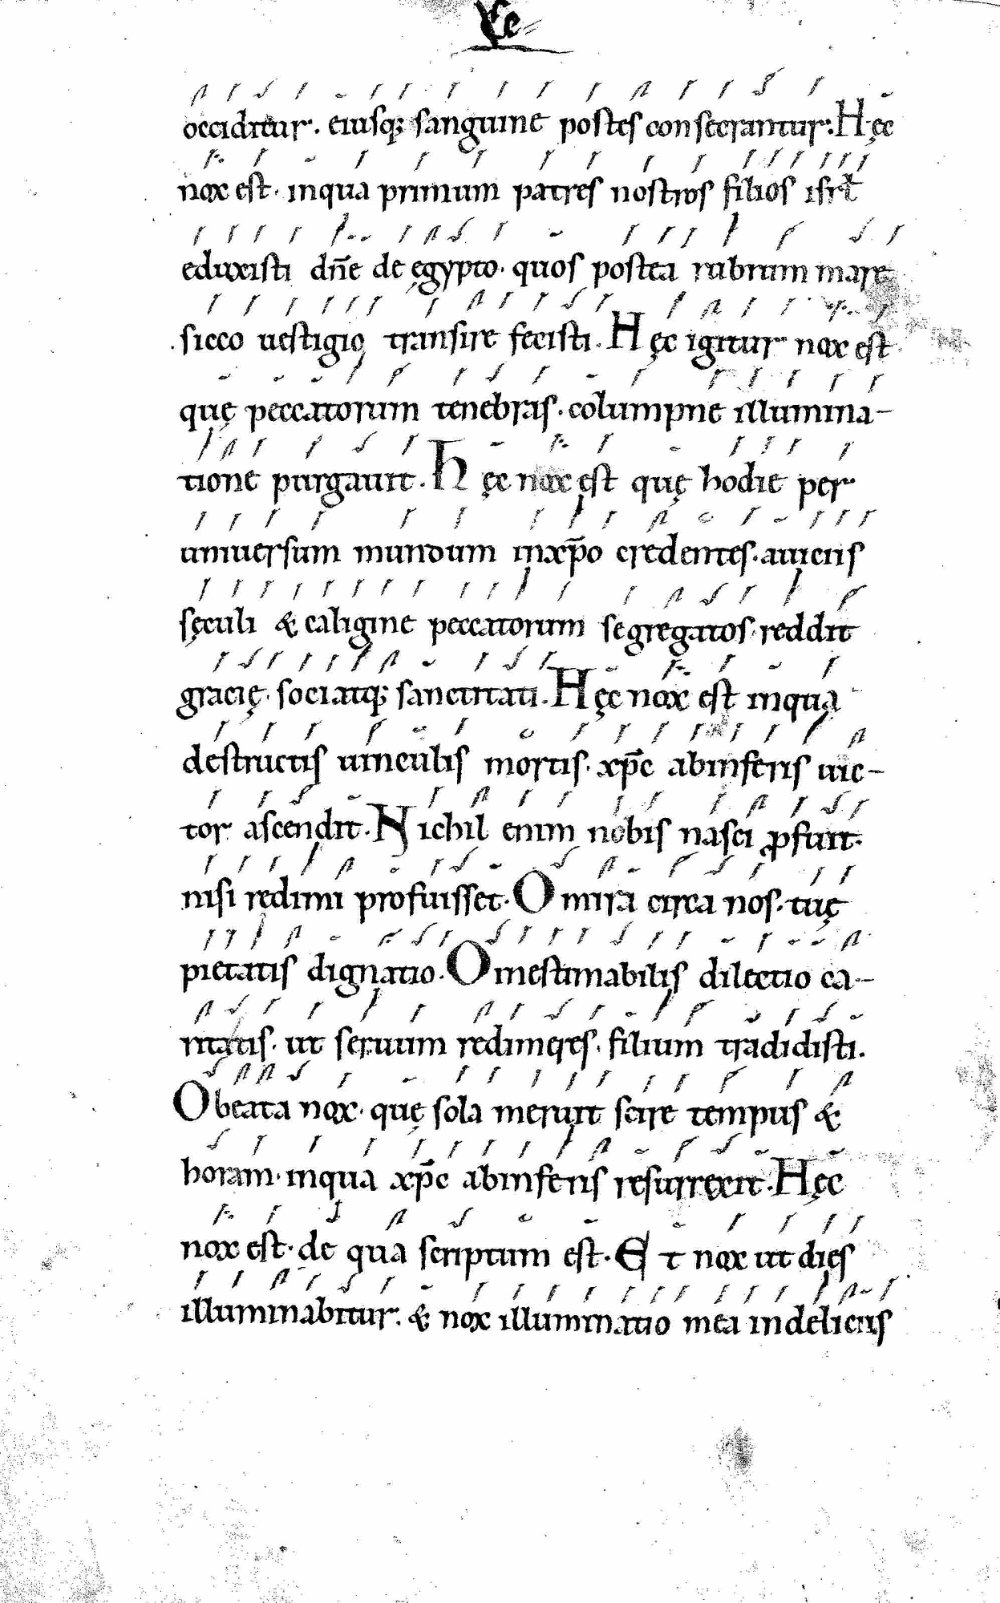 occiditur. eiusq; sanguine postes consecrantur. Hęc
nox est. inqua primum patres nostros filios isrł
eduxisti dn̄e de ęgypto. quos postea rubrum mare
sicco uestigio transire fecisti. Hęc igitur nox est
quę peccatorum tenebras. columpne illumina-
tione purgauit. Hęc nox est quę hodie per
uniuersum mundum inxp̄o credentes. auiciis
sęculi & caligine peccatorum segregatos. reddit
gracię. sociatq; sanctitati. Hęc nox est inqua
destructis uinculis mortis. xp̄c abinferis uic-
tor ascendit. Nichil enim nobis nasci ꝓfuit.
nisi redimi profuisset. O mira circa nos. tuę
pietatis dignatio. O inestimabilis dilectio ca-
ritatis. ut seruum redimeres. filium tradidisti.
O beata nox. quę sola meruit scire tempus &
horam. inqua xp̄c abinferis resurrexit. Hęc
nox est. de qua scriptum est. Et nox ut dies
illuminabitur. & nox illuminatio mea indeliciis